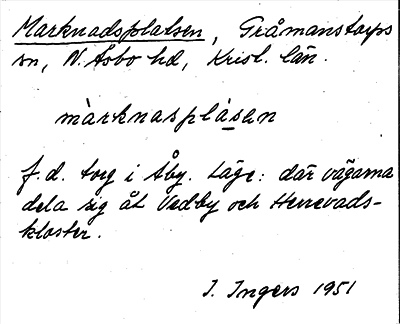 Marknadsplatsen, Gråmanstorps
sn, N. Åsbo hd, Krist. län.
màrknasplàsen
f.d. torg i Åby. Läge: där vägarna
dela sig åt Vedby och Herrevads-
kloster.
I. Ingers 1951